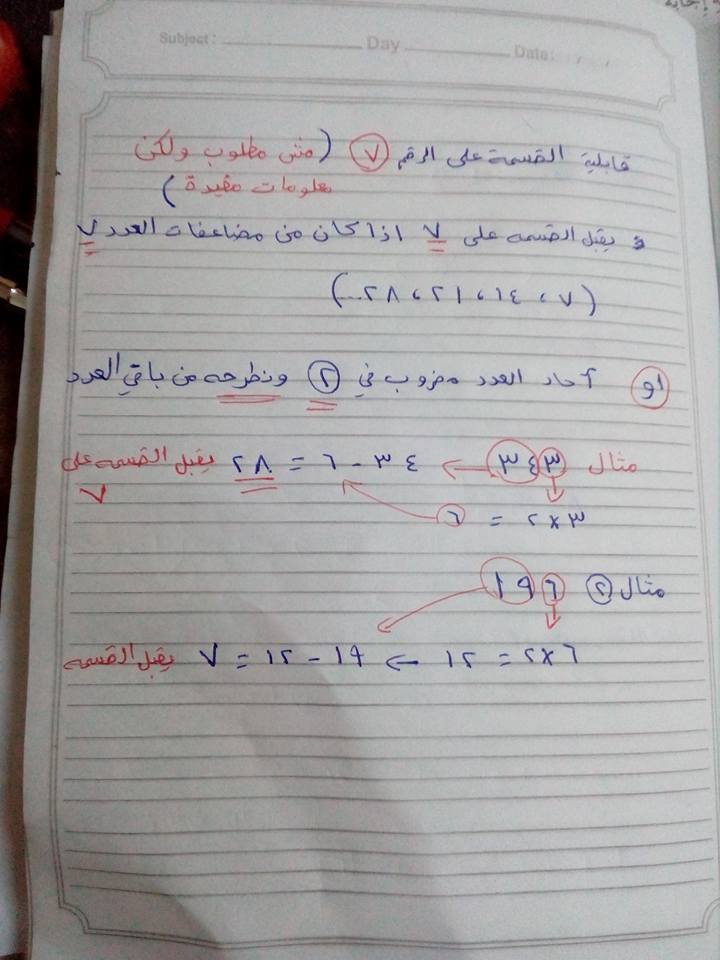 Subject: Day Date: / /
قابلية القسمة على الرقم ٧ (مش مطلوب ولكن
معلومات مفيدة)
يقبل القسمه على ٧ اذا كان من مضاعفات العدد ٧
(٧، ١٤، ٢١، ٢٨...)
او آحاد العدد مضروب في ٢ ونطرحه من باقي العدد
مثال ٣٤٣ ← ٣٤ - ٦ = ٢٨ يقبل القسمه على
٧
٣×٢ = ٦
مثال ٢ ١٩٦
٦×٢ = ١٢ ← ١٩ - ١٢ = ٧ يقبل القسمه